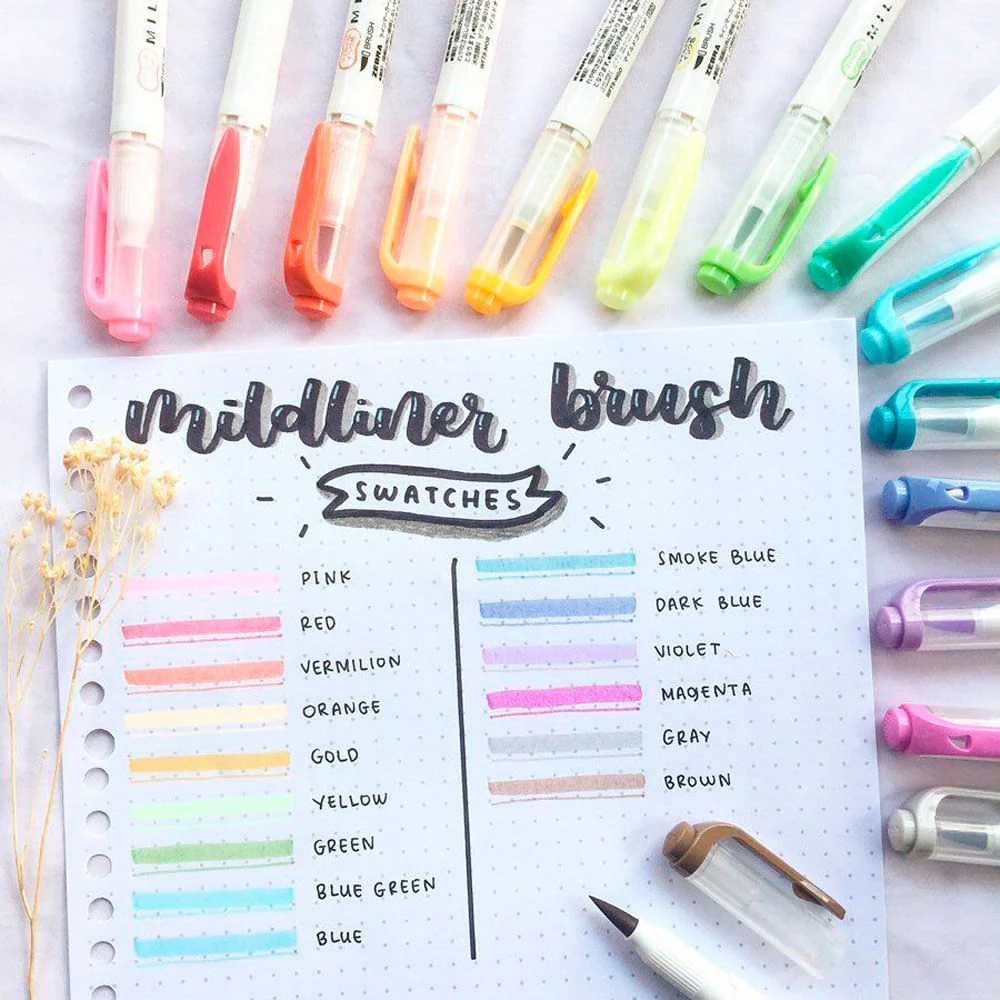 MIL
MIL
BRUSH
ZEBRA
BRUSH
ZEBRA
MIL
mildliner brush
SWATCHES
PINK
RED
VERMILION
ORANGE
GOLD
YELLOW
GREEN
BLUE GREEN
BLUE
SMOKE BLUE
DARK BLUE
VIOLET
MAGENTA
GRAY
BROWN